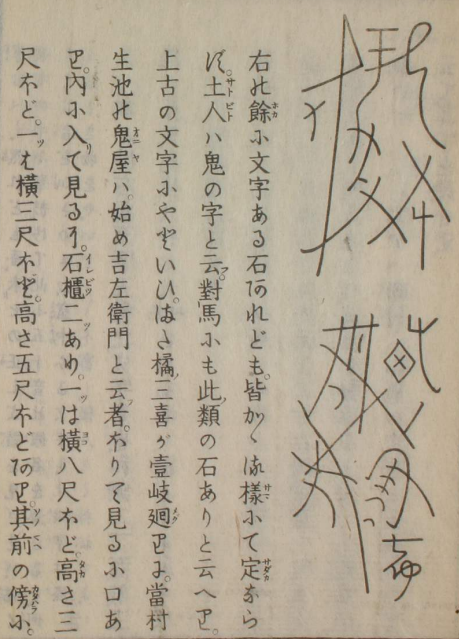 右の餘に文字ある石あれども。皆かゝる樣にて定なら
ず。土人ハ鬼の字と云。對馬にも此類の石ありと云へり。
上古の文字にやといひ。はた橘三喜が壹岐廻りに。當村
生池の鬼屋ハ。始め吉左衛門と云者。ほりて見るに口あ
り。內に入て見るに。石櫃二あり。一は橫八尺ほど。高さ三
尺ほど。一は橫三尺ほど。高さ五尺ほどあり。其前の傍に。